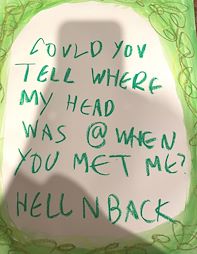 COULD YOU
TELL WHERE
MY HEAD
WAS @ WHEN
YOU MET ME?
HELL N BACK